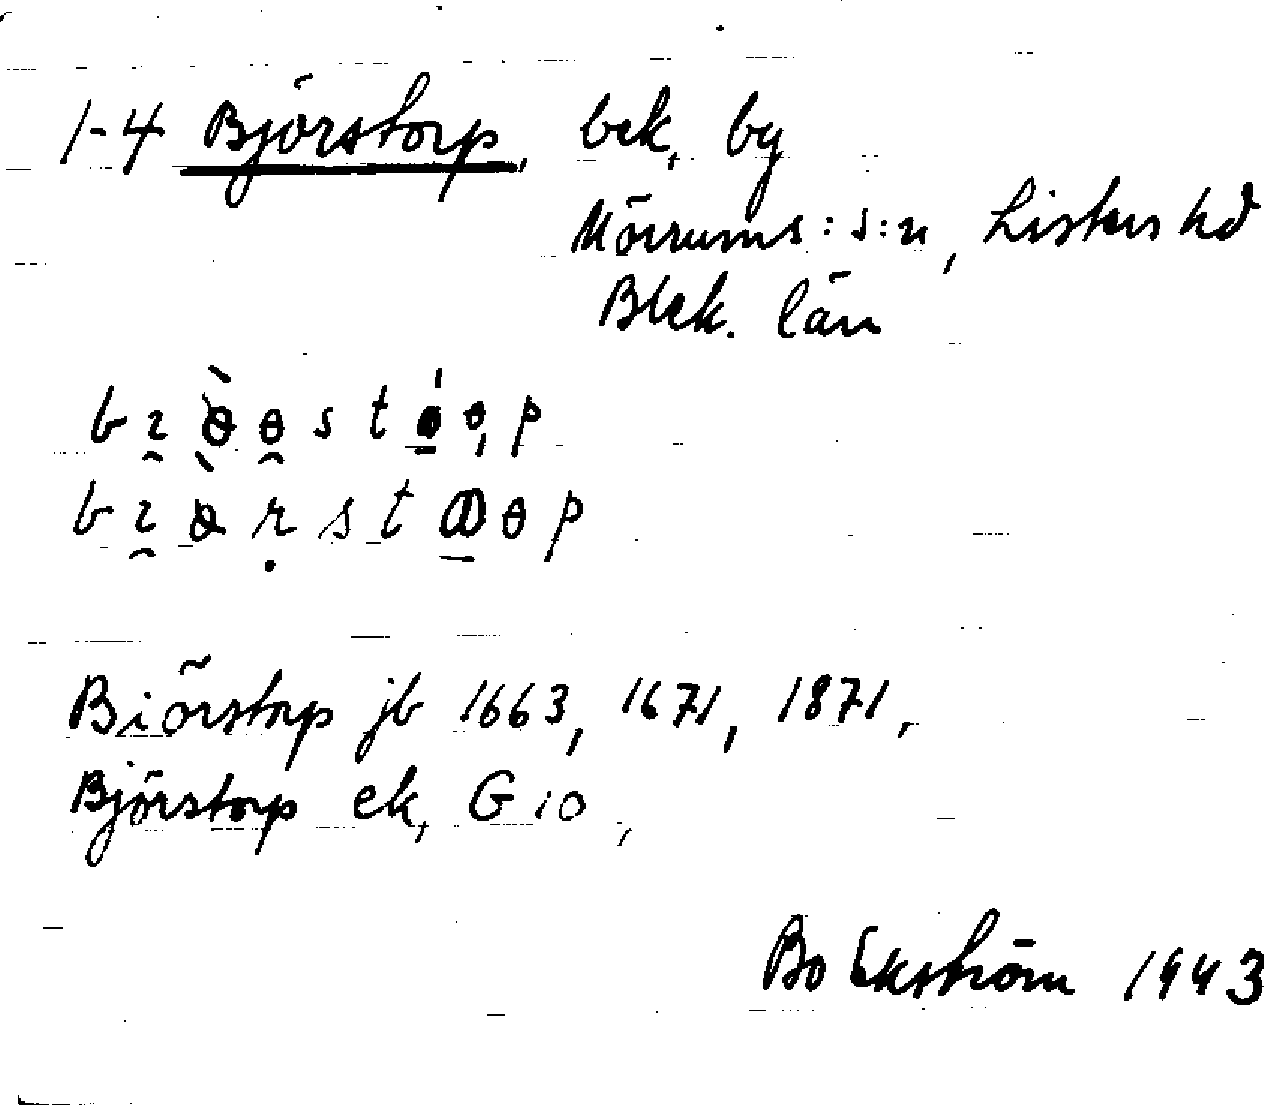 1-4 Björstorp, bek, by
Mörrums: s:n, Listers hd
Blek. län
Biörstorp jb 1663, 1671, 1871,
Björstorp ek, G 10,
Bo Ekström 1943